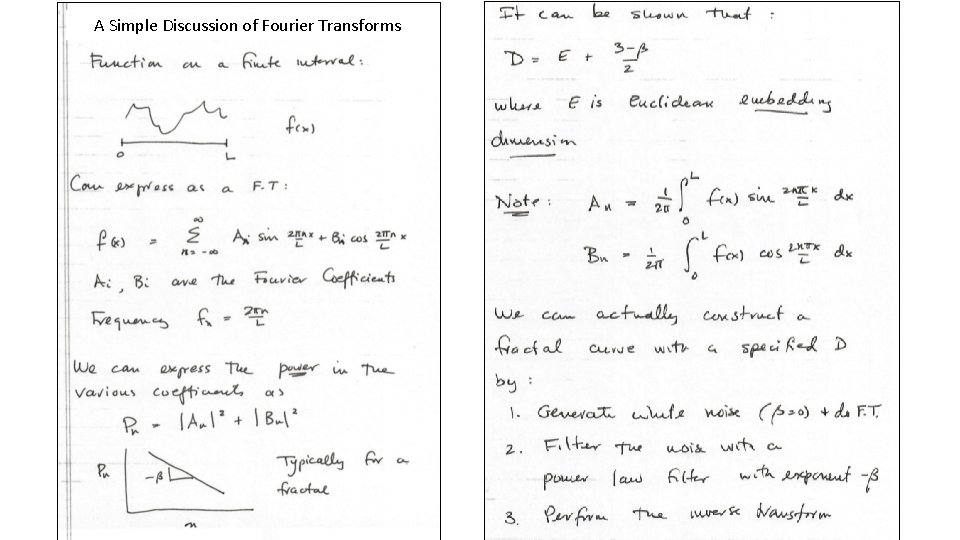 A Simple Discussion of Fourier Transforms
Function on a finite interval:
f(x)
0 L
Can express as a F.T:
f(x) = Σ_{n=-∞}^{∞} Ai sin 2πnx/L + Bi cos 2πn/L x
Ai, Bi are the Fourier Coefficients
Frequency fn = 2πn/L
We can express the power in the
various coefficients as
Pn = |An|² + |Bn|²
Pn
-β
Typically for a
fractal
n
It can be shown that :
D = E + (3-β)/2
where E is Euclidean embedding
dimension
Note: An = 1/2π ∫₀ᴸ f(x) sin 2nπx/L dx
Bn = 1/2π ∫₀ᴸ f(x) cos 2nπx/L dx
We can actually construct a
fractal curve with a specified D
by :
1. Generate white noise (β=0) + do F.T.
2. Filter the noise with a
power law filter with exponent -β
3. Perform the inverse transform